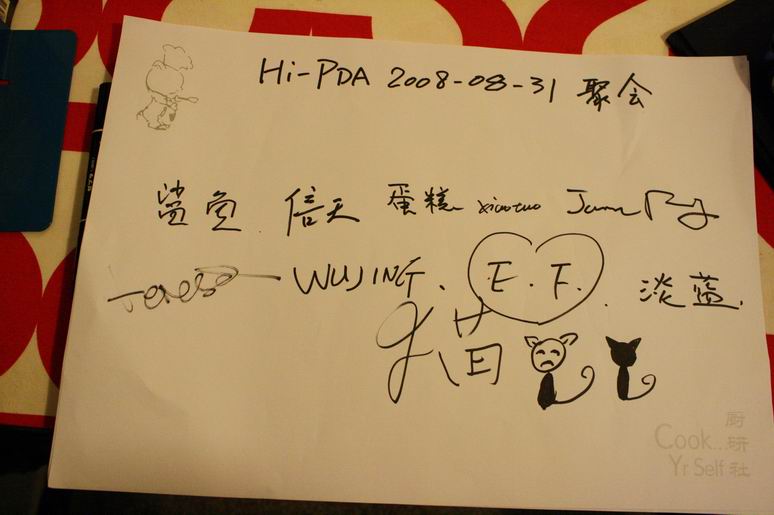 Hi-PDA 2008-08-31 聚会
鲨鱼 信天 蛋糕 xiaotuo
WUJING. E. F. 淡蓝.
猫
Cook... 厨研社
Yr Self